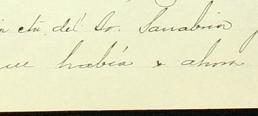 del Sr. Sanabria
que había & ahora